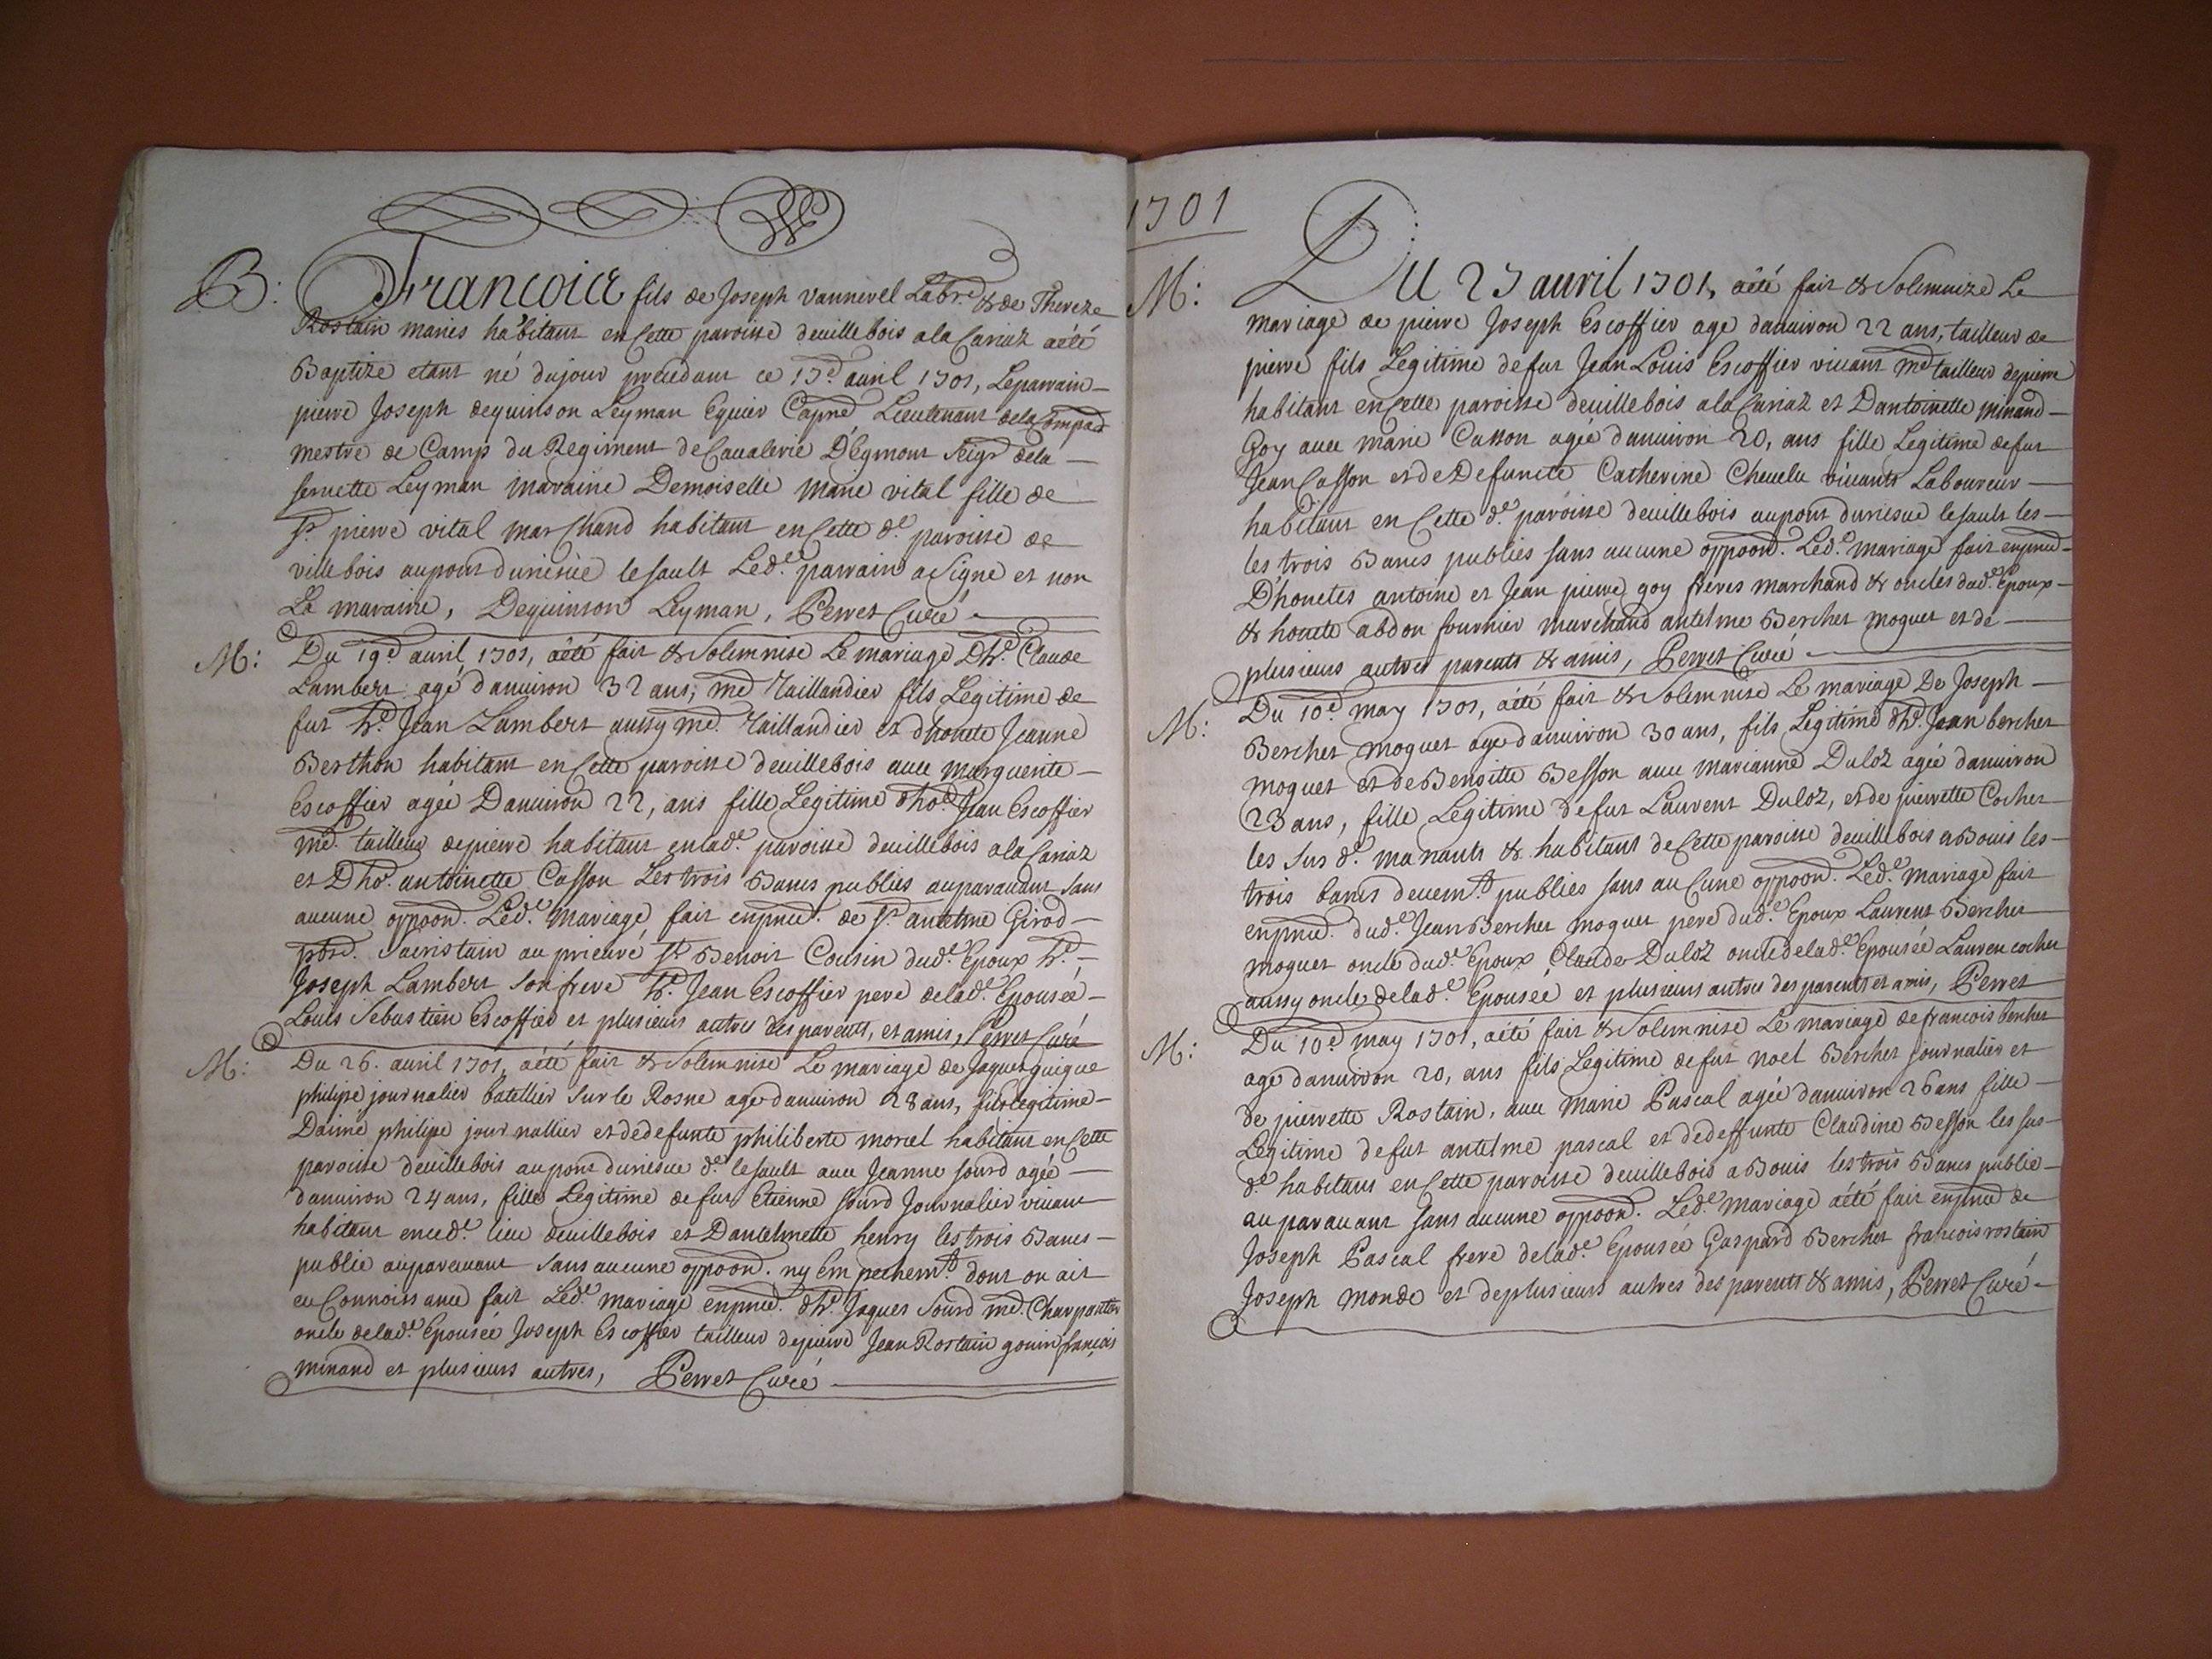 B: Francoice fils de Joseph vannevel Labr. & de Thereze
Rostain mariés habitant en Cette paroisse deuillebois ala Cariaz aété
Baptizé etant né dujour precedant ce 17.d auril 1701, Leparrain
pierre Joseph dequinson Leyman Equier Capne Lieutenant dela Compad
mestre de Camp du Regiment de Caualerie D'Egmont Seigr dela
seruette Leyman maraine Demoiselle marie vital fille de
Sr. pierre vital marchand habitant en Cette de. paroisse de
villebois aupont duriesue lesault Lede. parrain a Signé et non
La maraine, Dequinson Leyman, Perret Curé
M: Du 19d auril 1701, aété fait & Solemnise Le mariage Dhe. Claude
Lambert agé danuiron 32 ans, md Taillandier fils Legitime de
fut he. Jean Lambert aussy md. Taillandier et dhonete Jeanne
Berthon habitant en Cette paroisse deuillebois auec marguerite
Escoffier agée Danuiron 22, ans fille Legitime dho. Jean Escoffier
md. tailleur depierre habitant en lade. paroisse deuillebois ala Cariaz
et Dho. antoinette Casson Les trois Bancs publies auparauant sans
aucune oppoon. Lede. Mariage fait enpnce. de Sr. antelme Girod
pbre. Sacristain au prieuré St Benoit Cousin dude. Epoux he.
Joseph Lambert son frere he. Jean Escoffier pere delade. Epouseé
Louis Sebastien Escoffier et plusieurs autres des parents, et amis, Perret Curé
M: Du 26. auril 1701, aété fait & Solemnise Le mariage de Jaques guigue
philipe journalier batellier sur le Rosne agé danuiron 28 ans, fils legitime
Daimé philipe journallier et dedefunte philiberte morel habitant en Cette
paroisse deuillebois aupont duriesue de. lesault auec Jeanne sourd agée
danuiron 24 ans, fille Legitime de fut Etienne sourd Journalier viuant
habitant encede. lieu deuillebois et Dantelmette henry les trois Bancs
publie auparauant sans aucune oppoon. ny empechemt. dont on ait
eu Connoissance fait Lede. mariage enpnce. dhe. Jaques Sourd md. Charpantier
oncle delade. Epouseé Joseph Escoffier tailleur depierre Jean Rostain gonin françois
minand et plusieurs autres, Perret Curé
1701
M: Du 27 auril 1701, aêté fait & Solemnizé Le
mariage de pierre Joseph Escoffier age danuiron 22 ans, tailleur de
pierre fils Legitime de fut Jean Louis Escoffier viuant md tailleur depierre
habitant en Cette paroisse deuillebois ala Cariaz et Dantoinette minand
Goy auec marie Casson agée danuiron 20, ans fille Legitime de fut
Jean Casson et de Defuncte Catherine Cheuelu viuants Laboureur
habitant en Cette de. paroisse deuillebois aupont duriesue lesault les
les trois Bancs publiés sans aucune oppoon. Lede. mariage fait enpnce
D'honetes antoine et Jean pierre goy freres marchand & oncles dude. Epoux
& honete abdon fournier marchand antelme Berchet moquet et de
plusieurs autres parents & amis, Perret Curé
M: Du 10d may 1701, aété fait & Solemnisé Le mariage De Joseph
Berchet moquet age danuiron 30 ans, fils Legitime dhe. Jean berchet
moquet et de Benoitte Besson auec marianne Duloz agée danuiron
23 ans, fille Legitime de fut Laurent Duloz, et de pierrette Cochet
les sus de. manants & habitant de Cette paroisse deuillebois a Bouis les
trois bancs deuemt publies sans aucune oppoon. Lede. mariage fait
enpnce. dude. Jean Berchet moquet pere dude. Epoux Laurent Berchet
moquet oncle dude. Epoux Claude Duloz oncle delade. Epouseé Lauren cochet
aussy oncle delade. Epouseé et plusieurs autre des parents et amis, Perret
M: Du 10d may 1701, aété fait & Solemnise Le mariage de francois berchet
age danuiron 20, ans fils Legitime de fut noel Berchet journalier et
de pierrette Rostain, auec Marie Pascal agée danuiron 26 ans fille
Legitime de fut antelme pascal et dedeffunte Claudine Besson les sus
de. habitans en Cette paroisse deuillebois a Bouis les trois Bancs publie
auparauant sans aucune oppoon. Lede. mariage aété fait enpnce de
Joseph Pascal frere delade. Epouseé Gaspard Berchet francois rostain
Joseph monde et deplusieurs autres des parents & amis, Perret Curé